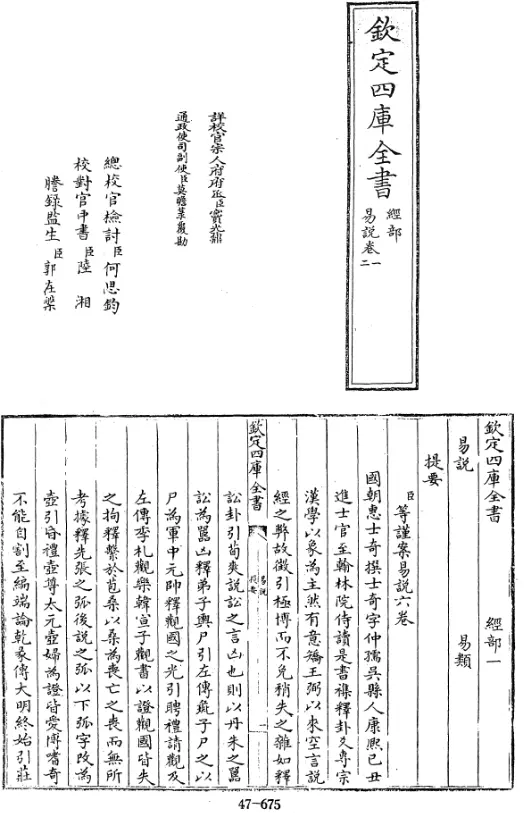 欽定四庫全書
經部
易説卷一
二
詳校官宗人府府丞臣竇光鼐
通政使司副使臣莫瞻菉覆勘
總校官檢討臣何思鈞
校對官中書臣陸湘
謄録監生臣郭在棨
欽定四庫全書 經部一
易説 易類
提要
臣等謹案易説六卷
國朝惠士奇撰士奇字仲孺吳縣人康熙己丑
進士官至翰林院侍讀是書襍釋卦爻專宗
漢學以象為主然有意矯王弼以來空言說
經之弊故徵引極博而不免稍失之雜如釋
欽定四庫全書
易説
提要
一
訟卦引荀爽說訟之言凶也則以丹朱之嚚
訟為嚚凶釋弟子輿尸引左傳彘子尸之以
尸為軍中元帥釋觀國之光引聘禮請觀及
左傳季札觀樂韓宣子觀書以證觀國皆失
之拘釋繫於苞桑以桑為喪亡之喪而無所
考據釋先張之弧後説之弧以下弧字改為
壺引昏禮壺尊太元壺婦為證皆愛博嗜奇
不能自割至編端論乾彖傳大明終始引莊
47-675